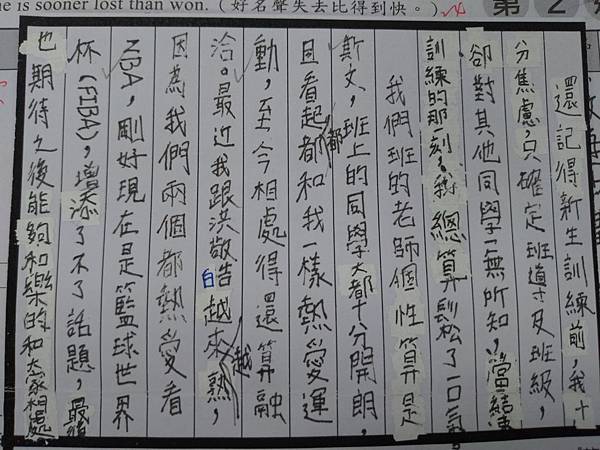 ne is sooner lost than won.（好名聲失去比得到快。）
第 2
還記得新生訓練前，我十
分焦慮，只確定班導及班級，
卻對其他同學一無所知，當結束
訓練的那一刻，我總算鬆了一口氣。
我們班的老師個性算是
斯文，班上的同學大都十分開朗，
且看起都和我一樣熱愛運
動，至今相處得還算融
洽。最近我跟洪敬皓越來越熟，
因為我們兩個都熱愛看
NBA，剛好現在是籃球世界
杯(FIBA)，增添了不了話題，最後
也期待之後能夠和樂的和大家相處